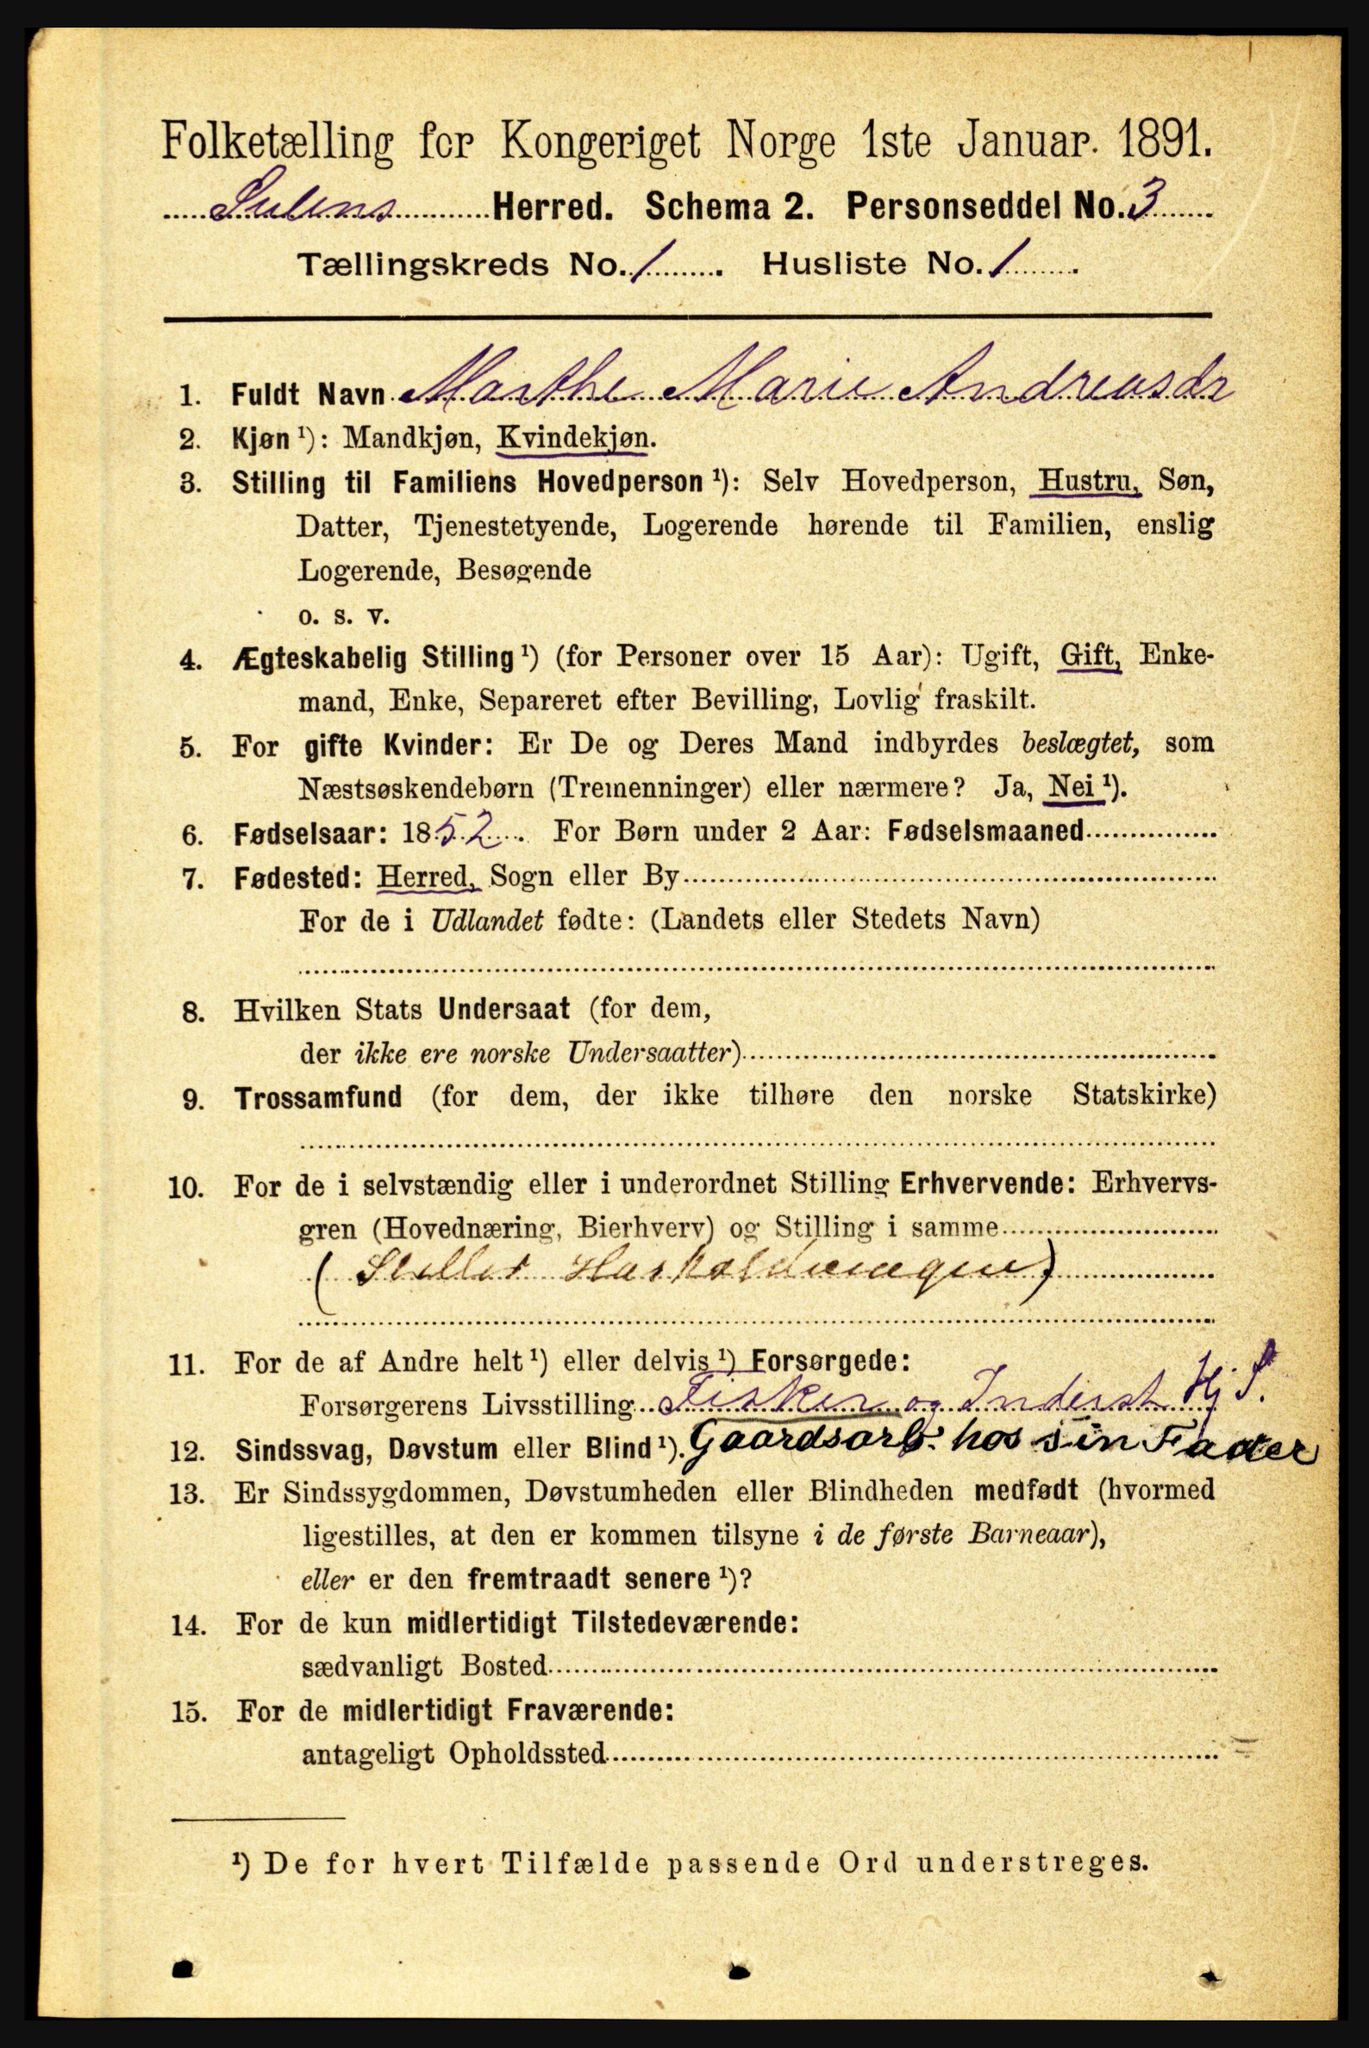 Folketælling for Kongeriget Norge 1ste Januar 1891.
Sulens Herred. Schema 2. Personseddel No. 3
Tællingskreds No. 1. Husliste No. 1.
1. Fuldt Navn Marthe Marie Andreasdr
2. Kjøn ¹): Mandkjøn, Kvindekjøn.
3. Stilling til Familiens Hovedperson ¹): Selv Hovedperson, Hustru, Søn,
Datter, Tjenestetyende, Logerende hørende til Familien, enslig
Logerende, Besøgende
o. s. v.
4. Ægteskabelig Stilling ¹) (for Personer over 15 Aar): Ugift, Gift, Enke-
mand, Enke, Separeret efter Bevilling, Lovlig fraskilt.
5. For gifte Kvinder: Er De og Deres Mand indbyrdes beslægtet, som
Næstsøskendebørn (Tremenninger) eller nærmere? Ja, Nei ¹).
6. Fødselsaar: 1852. For Børn under 2 Aar: Fødselsmaaned
7. Fødested: Herred, Sogn eller By
For de i Udlandet fødte: (Landets eller Stedets Navn)
8. Hvilken Stats Undersaat (for dem,
der ikke ere norske Undersaatter)
9. Trossamfund (for dem, der ikke tilhøre den norske Statskirke)
10. For de i selvstændig eller i underordnet Stilling Erhvervende: Erhvervs-
gren (Hovednæring, Bierhverv) og Stilling i samme
(Steller Husholdningen)
11. For de af Andre helt ¹) eller delvis ¹) Forsørgede:
Forsørgerens Livsstilling Fisker og Inderst Hj S.
12. Sindssvag, Døvstum eller Blind ¹). Gaardsarb. hos sin Fader
13. Er Sindssygdommen, Døvstumheden eller Blindheden medfødt (hvormed
ligestilles, at den er kommen tilsyne i de første Barneaar),
eller er den fremtraadt senere ¹)?
14. For de kun midlertidigt Tilstedeværende:
sædvanligt Bosted
15. For de midlertidigt Fraværende:
antageligt Opholdssted
¹) De for hvert Tilfælde passende Ord understreges.